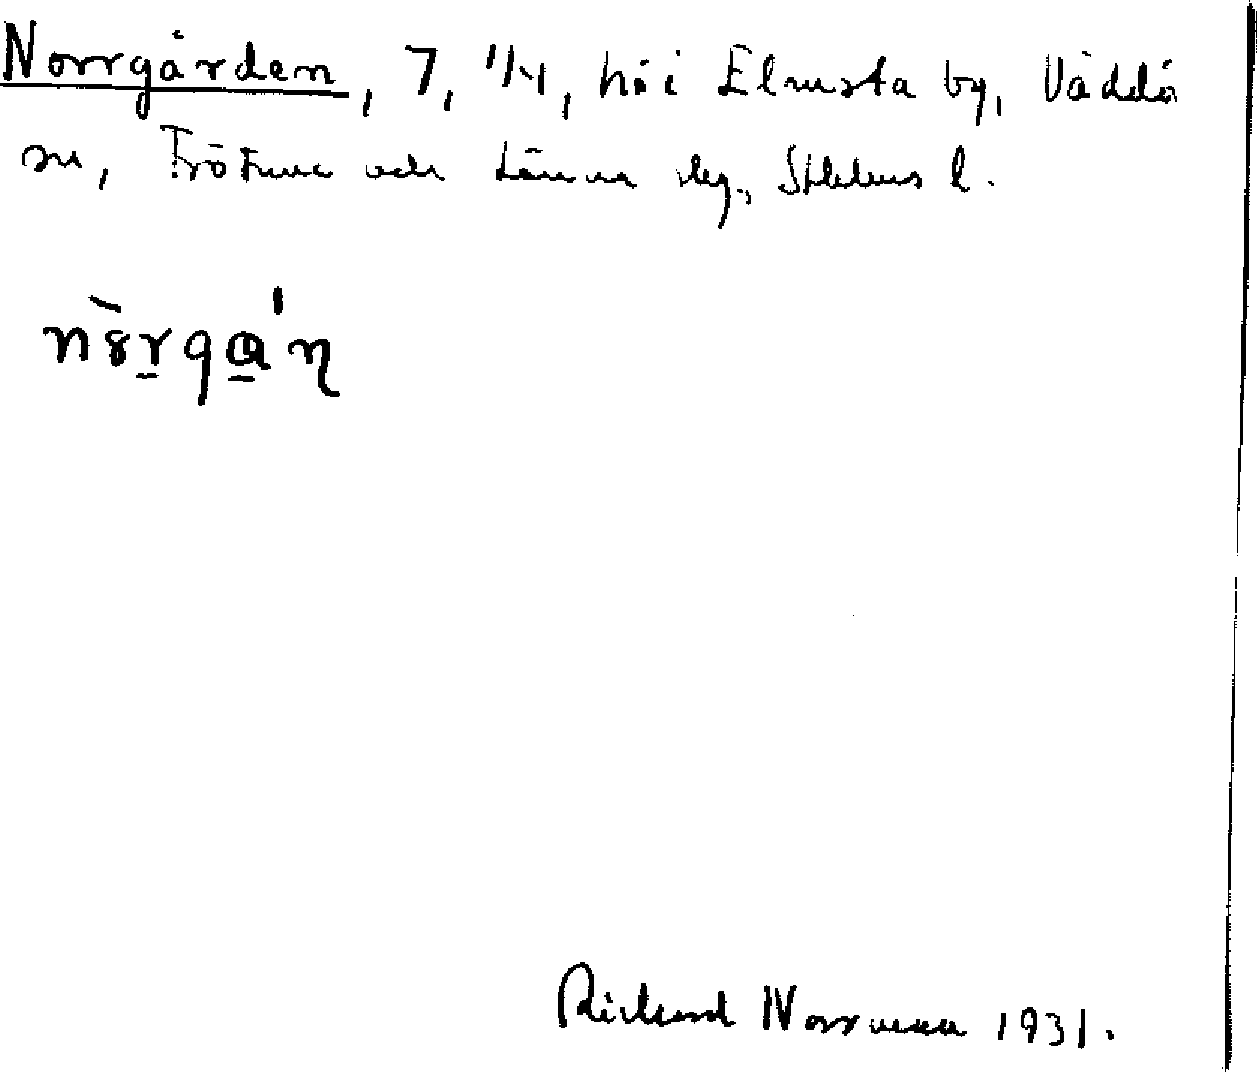 Norrgården, 7, 1/4, hö i Elmsta by, Väddö
sn, Frötuna och Länna skg., Sthlms l.
nòrgɑ'ɳ
Rickard Norrman 1931.